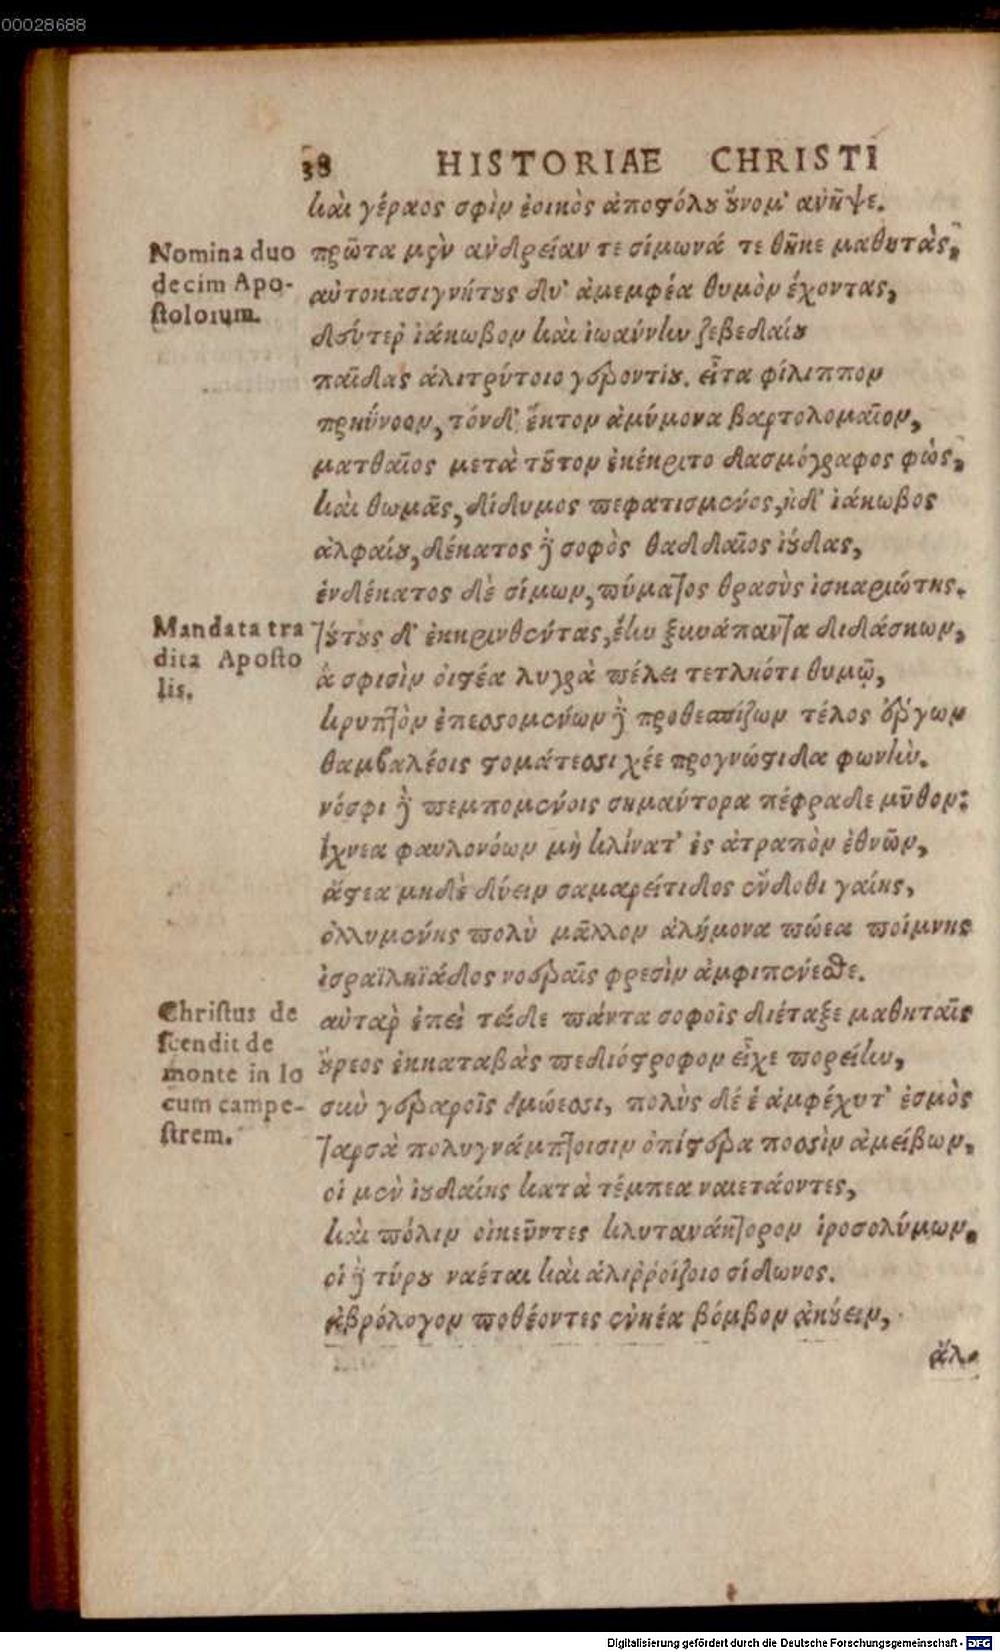 00028688
38 HISTORIAE CHRISTI
καὶ γέραος σφὶν ἐοικὸς ἀποστόλου οὔνομ' ἀνῆψε.
Nomina duo
decim Apo-
stolorum.
πρῶτα μὲν ἀνδρείαν τε σίμωνά τε θῆκε μαθητὰς,
αὐτοκασιγνήτους δύ' ἀμεμφέα θυμὸν ἔχοντας,
δεύτερ' ἰάκωβον καὶ ἰωαύνην ζεβεδαίου
παῖδας ἁλιτρύτοιο γέροντος. εἶτα φίλιππον
πρηΰνοον, τόνδ' ἕκτον ἀμύμονα βαρτολομαῖον,
ματθαῖος μετὰ τοῦτον ἐκέκριτο δασμόγραφος φὼς,
καὶ θωμᾶς, δίδυμος πεφατισμένος, ἠδ' ἰάκωβος
ἀλφαίου, δέκατος δὲ σοφὸς θαδδαῖος ἰούδας,
ἑνδέκατος δὲ σίμων, πύματος θρασὺς ἰσκαριώτης.
Mandata tra
dita Aposto
lis.
τούτους δ' ἐκκρινθέντας, ἔην ξυνάπαντα διδάσκων,
ἅ σφισὶν οἰστέα λυγρὰ πέλει τετληότι θυμῷ,
κρυπτὸν ἐπεσσομένων δὲ προθεσπίζων τέλος ἔργων
θαμβαλέοις στομάτεσσι χέε προγνώστιδα φωνήν.
νόσφι δὲ πεμπομένοις σημαύτορα πέφραδε μῦθον:
ἴχνεα φαυλονόων μὴ κλίνατ' ἐς ἀτραπὸν ἐθνῶν,
ἄστεα μηδὲ δύειν σαμαρείτιδος ἔνδοθι γαίης,
ὀλλυμένης πολὺ μᾶλλον ἀλήμονα πώεα ποίμνης
ἰσραϊληϊάδος νοεραῖς φρεσὶν ἀμφιπένεσθε.
Christus de
scendit de
monte in lo
cum campe-
strem.
αὐτὰρ ἐπεὶ τάδε πάντα σοφοῖς διέταξε μαθηταῖς
οὔρεος ἐκκαταβὰς πεδιόστροφον εἶχε πορείην,
σὺν γεραροῖς δμώεσσι, πολὺς δέ ἑ ἀμφέχυτ' ἑσμὸς
ταρσὰ πολυγνάμπτοισιν ὀπίστερα ποσσὶν ἀμείβων,
οἱ μὲν ἰουδαίης κατὰ τέμπεα ναιετάοντες,
καὶ πόλιν οἰκεῦντες κλυτανάκτορον ἱροσολύμων,
οἱ δὲ τύρου ναέται καὶ ἁλιρροίζοιο σίδωνος.
ἁβρόλογον ποθέοντες ἐνκέα βόμβον ἀκούειν,
ἄλ-
Digitalisierung gefördert durch die Deutsche Forschungsgemeinschaft - DFG